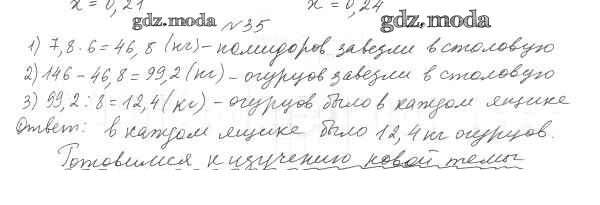 x = 0,21
x = 0,24
gdz.moda
№ 35
gdz.moda
1) 7,8 · 6 = 46,8 (кг) – помидоров завезли в столовую
2) 146 – 46,8 = 99,2 (кг) – огурцов завезли в столовую
3) 99,2 : 8 = 12,4 (кг) – огурцов было в каждом ящике
Ответ: в каждом ящике было 12,4 кг огурцов.
Готовимся к изучению новой темы